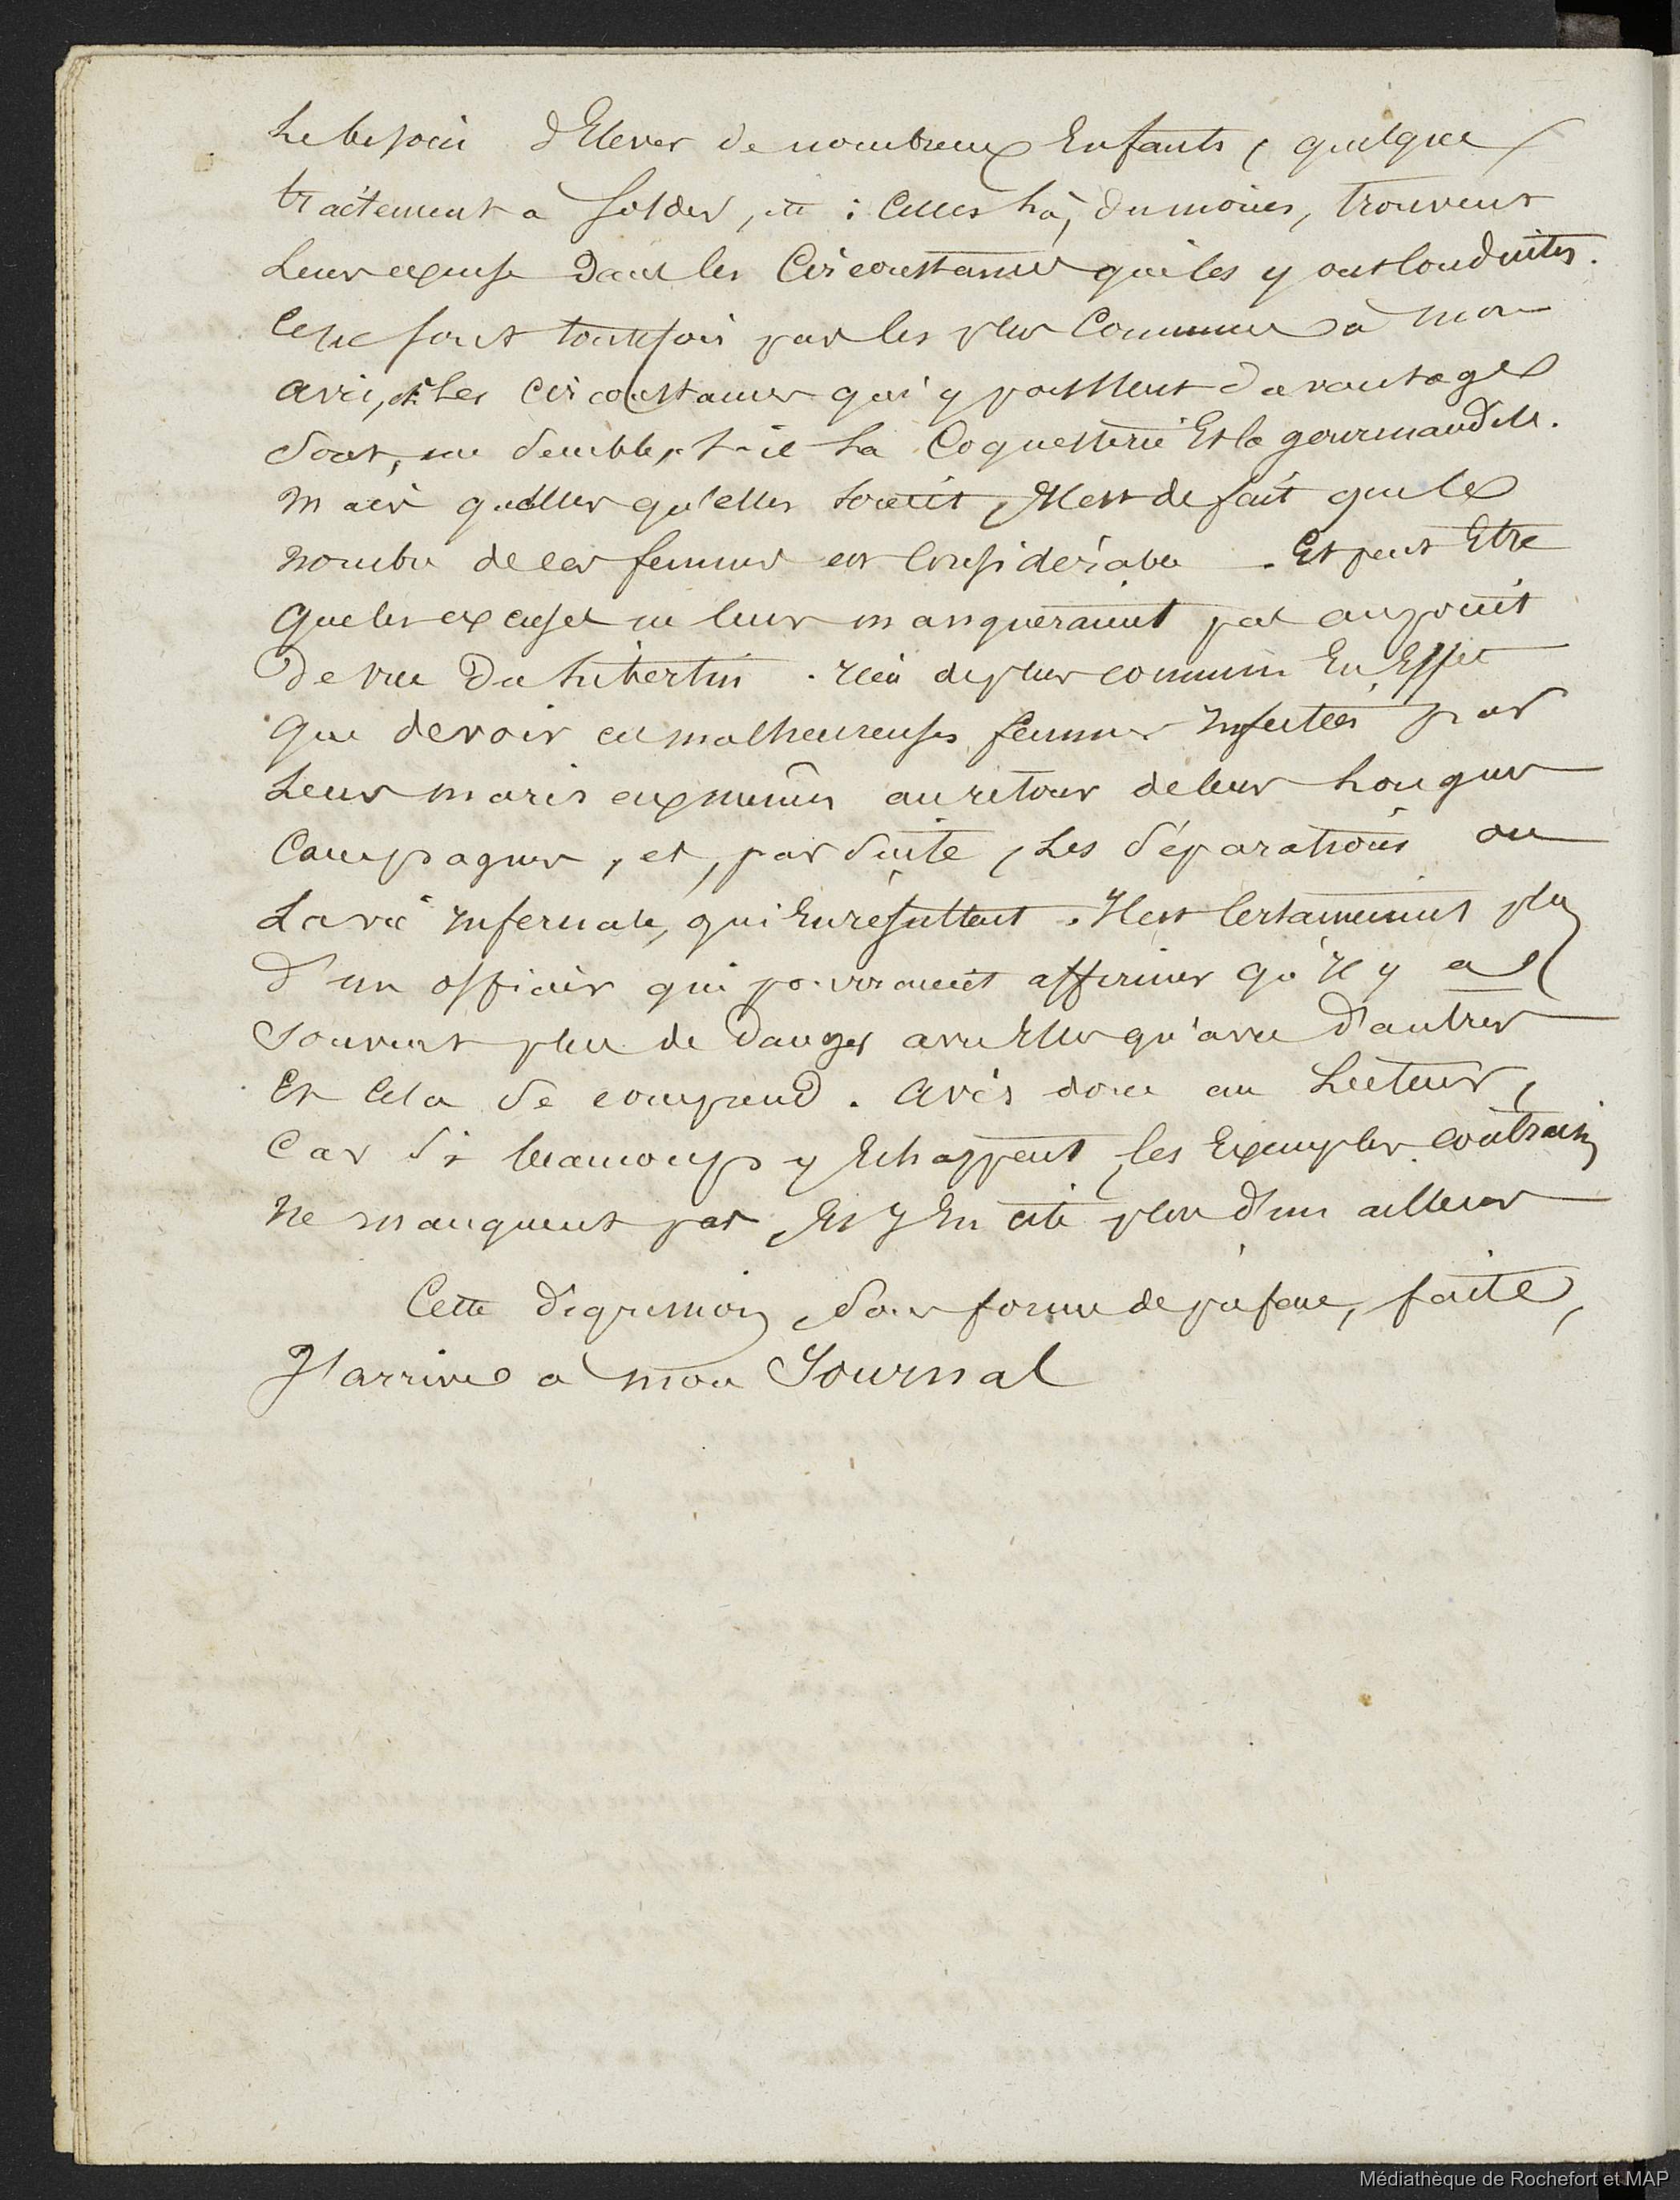 Le besoin d'Elever de nombreux Enfants, quelque
traitement a solder, etc : Celles là, du moins, trouvent
Leur excuse Dans les Circonstances qui les y ont Conduites.
Ce ne sont toutefois pas les plus Communes à mon
avis, et Les circonstances qui y poussent davantage
sont, me semble-t-il La Coquetterie Et la gourmandise.
Mais quelles qu'elles soient, Il est de fait que le
nombre de ces femmes est Considérable . Et peut Etre
que les excuses ne leur manqueraient pas au point
De vue Du Libertin . rien de plus commun En Effet
que de voir ces malheureuses femmes Infectées par
Leurs maris eux mêmes au retour de leurs Longues
Campagnes, et, par suite, Les séparations ou
La vie Infernale, qui En résultent . Il est Certainement plus
d'un officier qui pourraient affirmer qu'Il y a
souvent plus de Danger avec Elles qu'avec D'autres
Et Cela se comprend . Avis donc au Lecteur,
Car si beaucoup y Echappent, les Exemples contraires
Ne manquent pas, Et J'En cite plus d'un ailleurs
Cette digression, sous forme de préface, faite,
J'arrive à mon Journal
Médiathèque de Rochefort et MAP